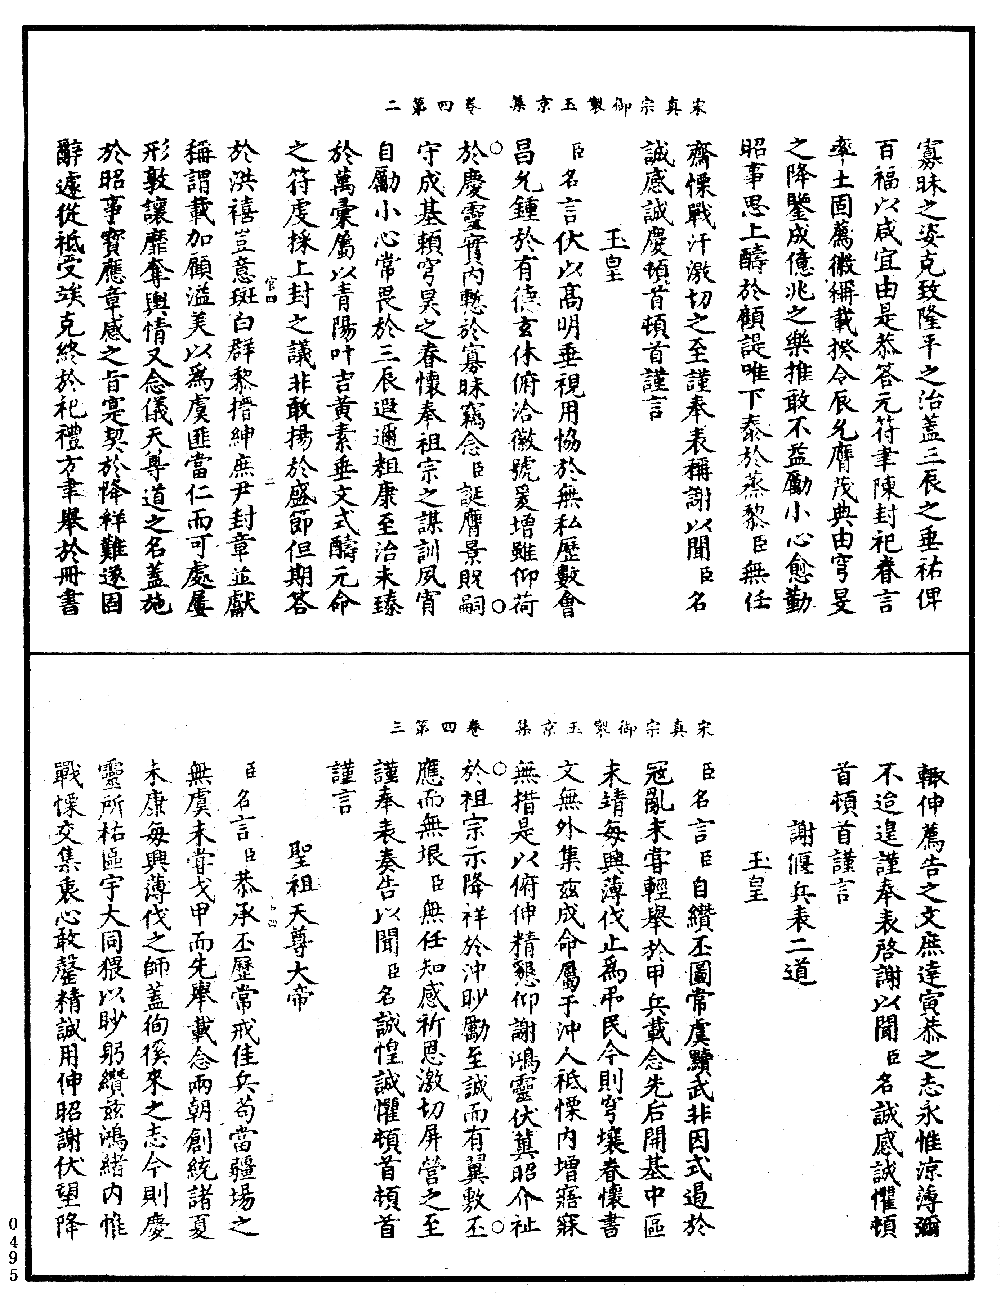 宋真宗御製玉京集　卷四第二
寡昧之姿克致隆平之治蓋三辰之垂祐俾
百福以咸宜由是恭答元符聿陳封祀眷言
率土固萬徽稱載揆令辰允膺茂典由穹旻
之降鑒成億兆之樂推敢不益勵小心愈勤
昭事思上疇於顧諟唯下泰於蒸黎臣無任
齋慄戰汗激切之至謹奉表稱謝以聞臣名
誠感誠慶頓首頓首謹言
玉皇
臣名言伏以高明垂視用協於無私歷數會
昌允鍾於有德玄休俯洽徽號爰增雖仰荷
於慶靈實內慙於寡昧竊念臣誕膺景貺嗣
守成基賴穹昊之眷懷奉祖宗之謀訓夙宵
自勵小心常畏於三辰遐邇粗康至治未臻
於萬彙屬以青陽叶吉黃素垂文式疇元命
之符虔採上封之議非敢揚於盛節但期答
於洪禧豈意斑白群黎搢紳庶尹封章並獻
稱謂載加顧溢美以為虞匪當仁而可處屢
形敦讓靡奪輿情又念儀天尊道之名蓋施
於昭事寶應章感之旨寔契於降祥難遂固
辭遽從祗受竢克終於祀禮方聿舉於冊書
官四
二
宋真宗御製玉京集　卷四第三
輒伸薦告之文庶達寅恭之志永惟涼薄彌
不迨遑謹奉表啓謝以聞臣名誠感誠懼頓
首頓首謹言
謝偃兵表二道
玉皇
臣名言臣自纘丕圖常虞黷武非因式遏於
寇亂未嘗輕舉於甲兵載念先后開基中區
未靖每興薄伐止為弔民今則穹壤眷懷書
文無外集茲成命屬于沖人祗慄內增寤寐
無措是以俯伸精懇仰謝鴻靈伏冀昭介祉
於祖宗示降祥於沖眇勵至誠而有翼敷丕
應而無垠臣無任知感祈恩激切屏營之至
謹奉表奏告以聞臣名誠惶誠懼頓首頓首
謹言
聖祖天尊大帝
臣名言臣恭承丕歷常戒佳兵苟當疆場之
無虞未嘗戈甲而先舉載念兩朝創統諸夏
未康每興薄伐之師蓋徇徯來之志今則慶
靈所祐區宇大同猥以眇躬纘茲鴻緒內惟
戰慄交集衷心敢罄精誠用伸昭謝伏望降
0495